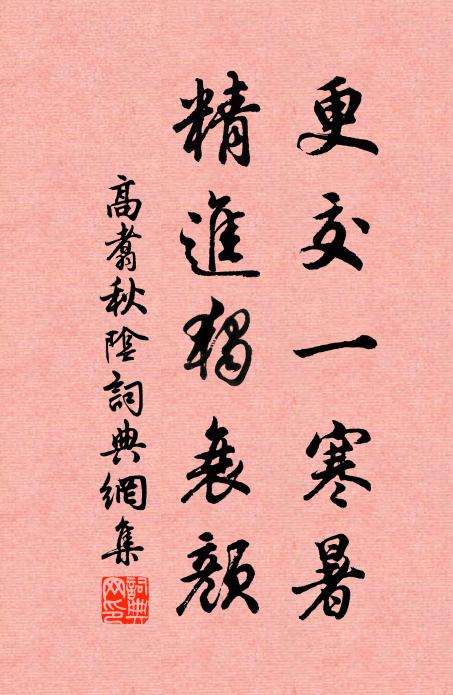 更交一寒暑
精進獨衰顏
高翥秋陰詞典網集
詞典
網印